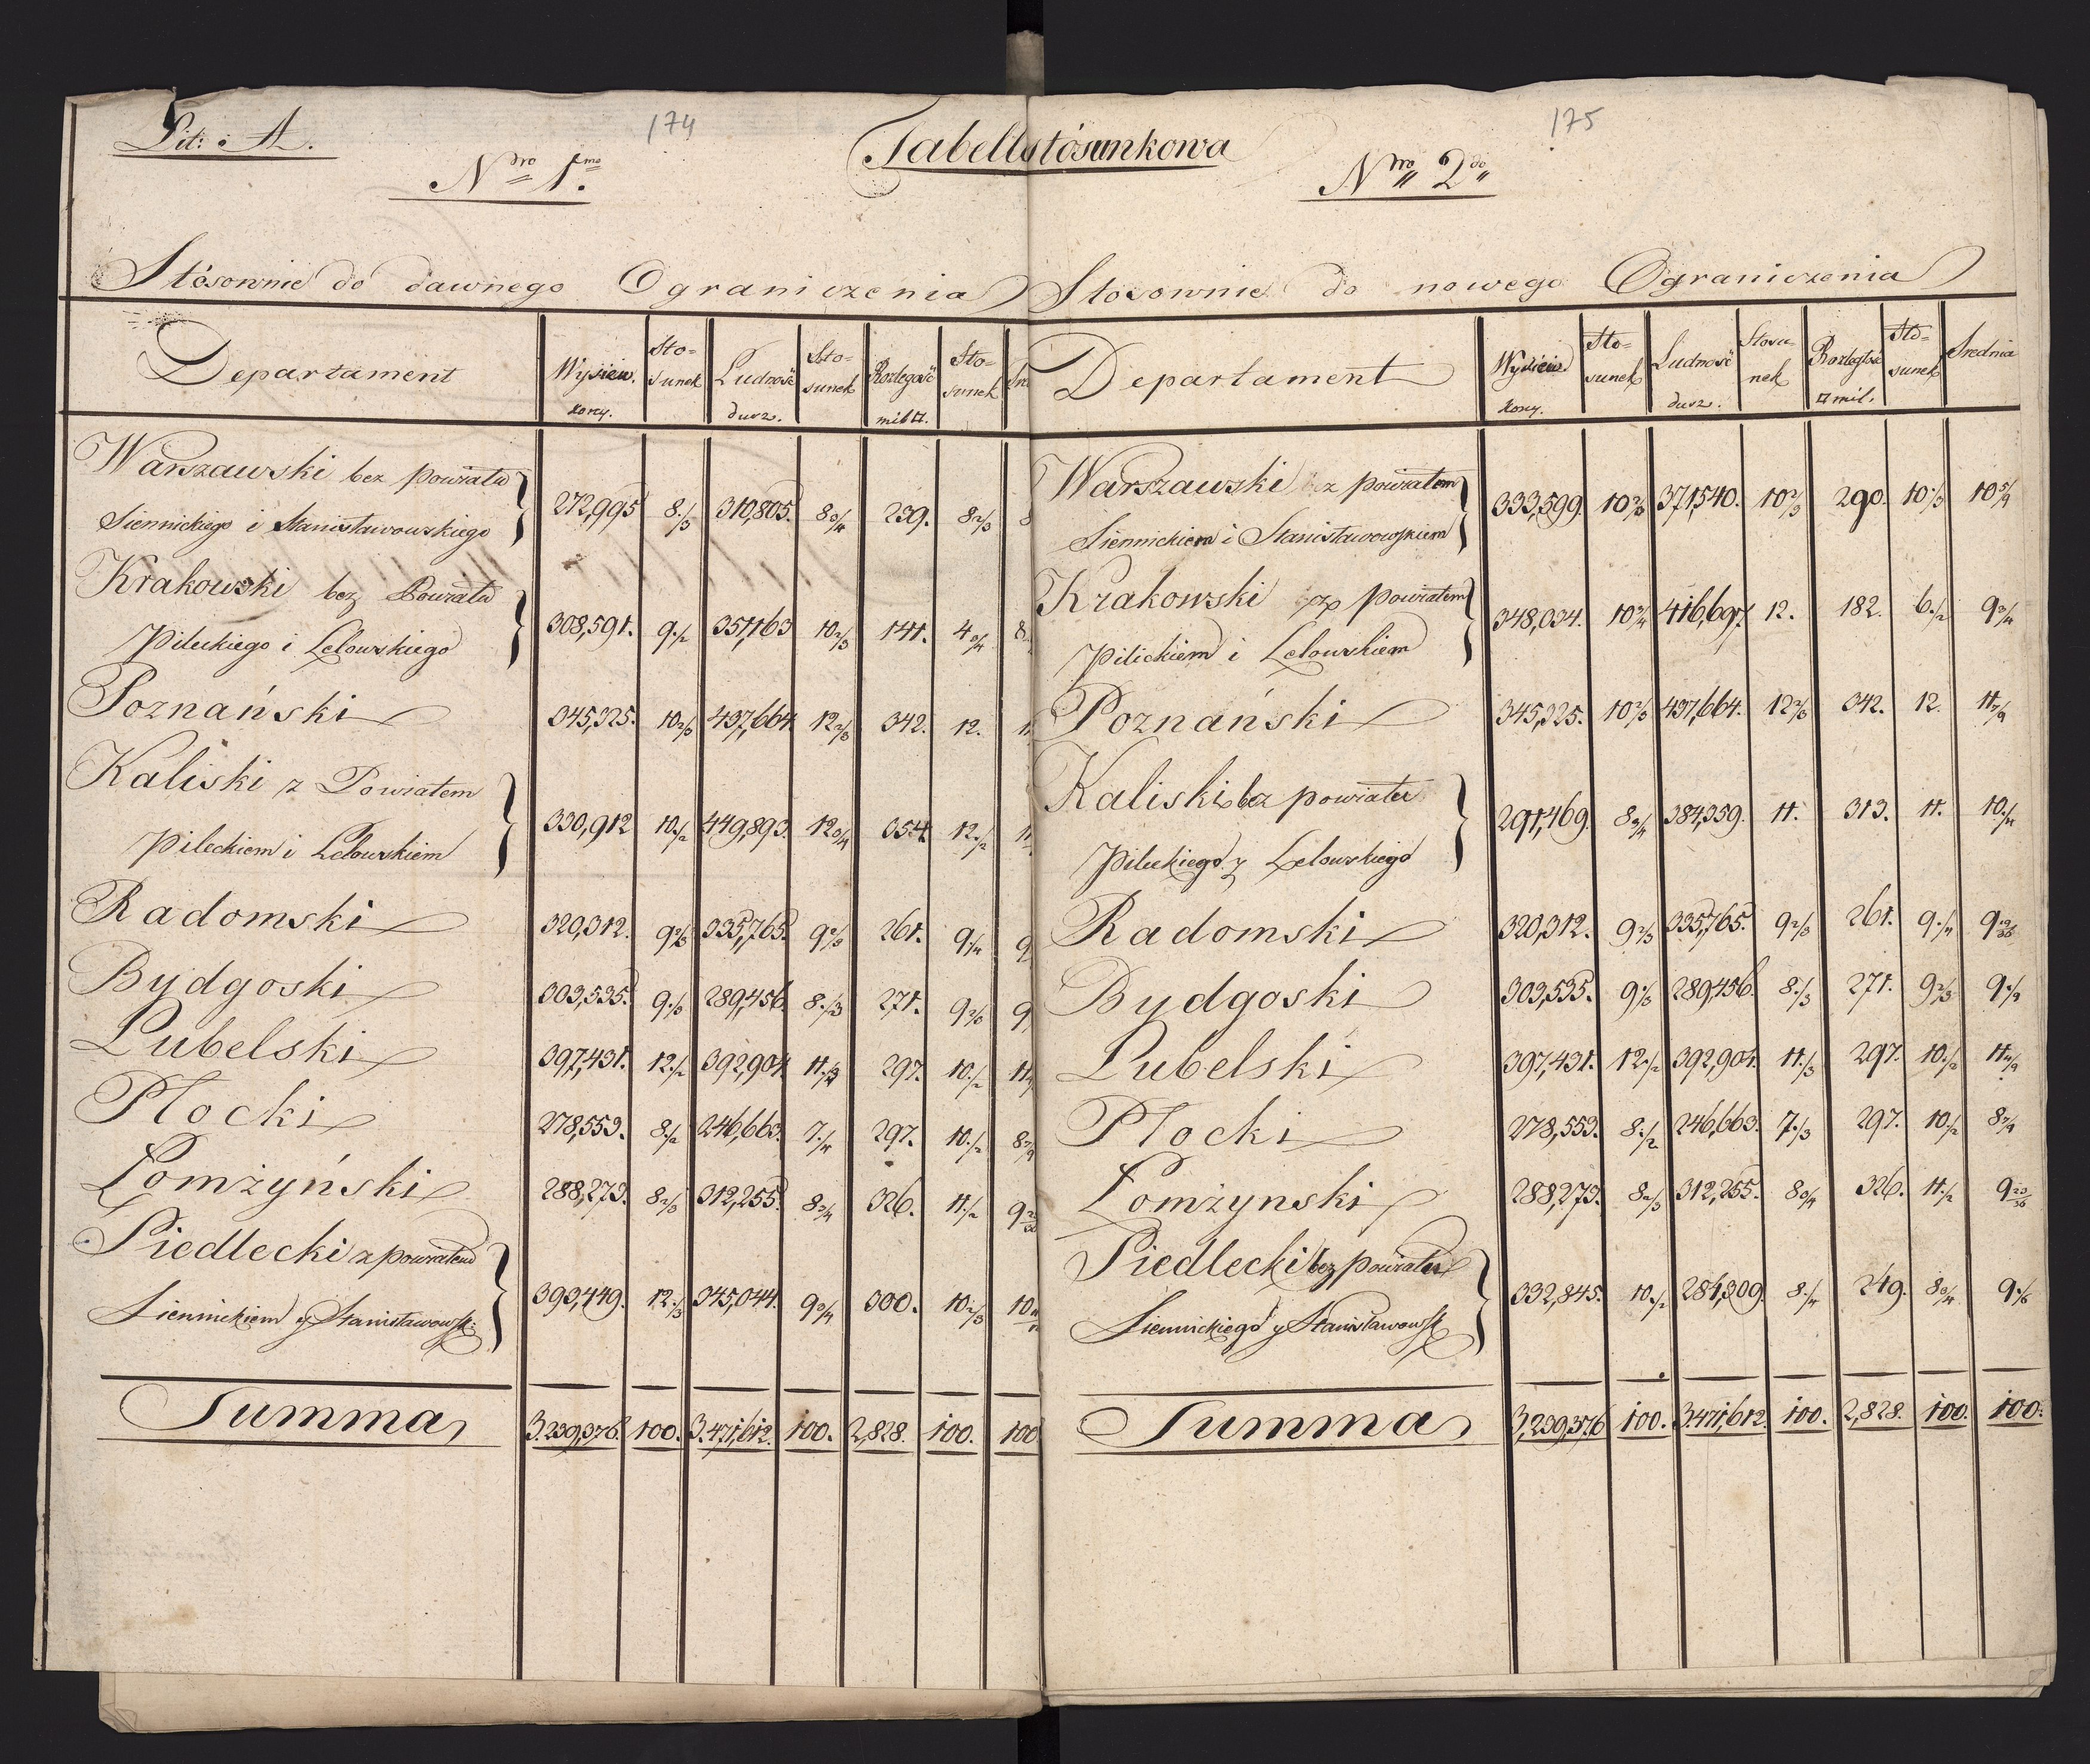 Lit: A.
174
Tabella stósunkowa
175
Nro 1mo
Nro 2do
Stósownie do dawnego Ograniczenia
Departament Wysiew. korcy. Sto=sunek Ludność dusz. Sto=sunek Rozległość mil □. Sto=sunek
Warszawski bez powiatu
Siennickiego i Stanisławowskiego 272,995 8 1/3 310,805. 8 3/4 239. 8 2/3
Krakowski bez Powiatu
Pileckiego i Lelowskiego 308,591. 9 1/2 357,163 10 2/3 141. 4 3/4
Poznański 345,325. 10 2/3 437,664. 12 2/3 342. 12.
Kaliski z Powiatem
Pileckiem i Lelowskiem 330,912 10 1/2 449,893. 12 3/4 354. 12 1/2
Radomski 320,312. 9 2/3 335,765. 9 2/3 261. 9 1/4
Bydgoski 303,535. 9 1/3 289,456. 8 1/3 271. 9 2/3
Lubelski 397,431. 12 1/2 392,904. 297. 10 1/2
Płocki 278,553. 8 1/2 246,663. 7 1/4 297. 10 1/2
Łomżyński 288,273. 8 2/3 312,255. 8 3/4 326. 11 1/2
Siedlecki z powiatem
Siennickiem y Stanisławowsk: 393,449. 12 1/3 345,044. 9 3/4 300. 10 2/3
Summa 3.239,376. 100. 3.471,612. 100. 2,828. 100. 100
Stosownie do nowego Ograniczenia
Departament Wysiew korcy. Sto=sunek Ludność dusz. Stosu=nek Rozległość □ mil. Sto=sunek Srednia
Warszawski z powiatem
Siennickiem i Stanisławowskiem 333,599. 10 2/3 371,540. 10 2/3 290. 10 1/3 10 5/9
Krakowski z powiatem
Pilickiem i Lelowskiem 348,034. 10 3/4 416,697. 12. 182. 6 1/2 9 3/4
Poznański 345,325. 10 2/3 437,664. 12 2/3 342. 12. 11 7/9
Kaliski bez powiatu
Pileckiego y Lelowskiego 291,469. 8 3/4 384,359. 11. 313. 11. 10 1/4
Radomski 320,312. 9 2/3 335,765. 9 2/3 261. 9 1/4
Bydgoski 303,535. 9 1/3 289,456. 8 1/3 271. 9 2/3 9 1/9
Lubelski 397,431. 12 1/2 392,904. 11 1/3 297. 10 1/2 11 4/9
Płocki 278,553. 8 1/2 246,663. 7 1/3 297. 10 1/2 8 7/9
Łomżynski 288,273. 8 2/3 312,255. 8 3/4 326. 11 1/2 9 23/36
Siedlecki bez powiatu
Siennickiego y Stanisławowsk 332,845. 10 1/2 284,309. 8 1/4 249. 8 3/4 9 1/6
Summa 3,239,376 100. 3.471,612. 100. 2,828. 100. 100.